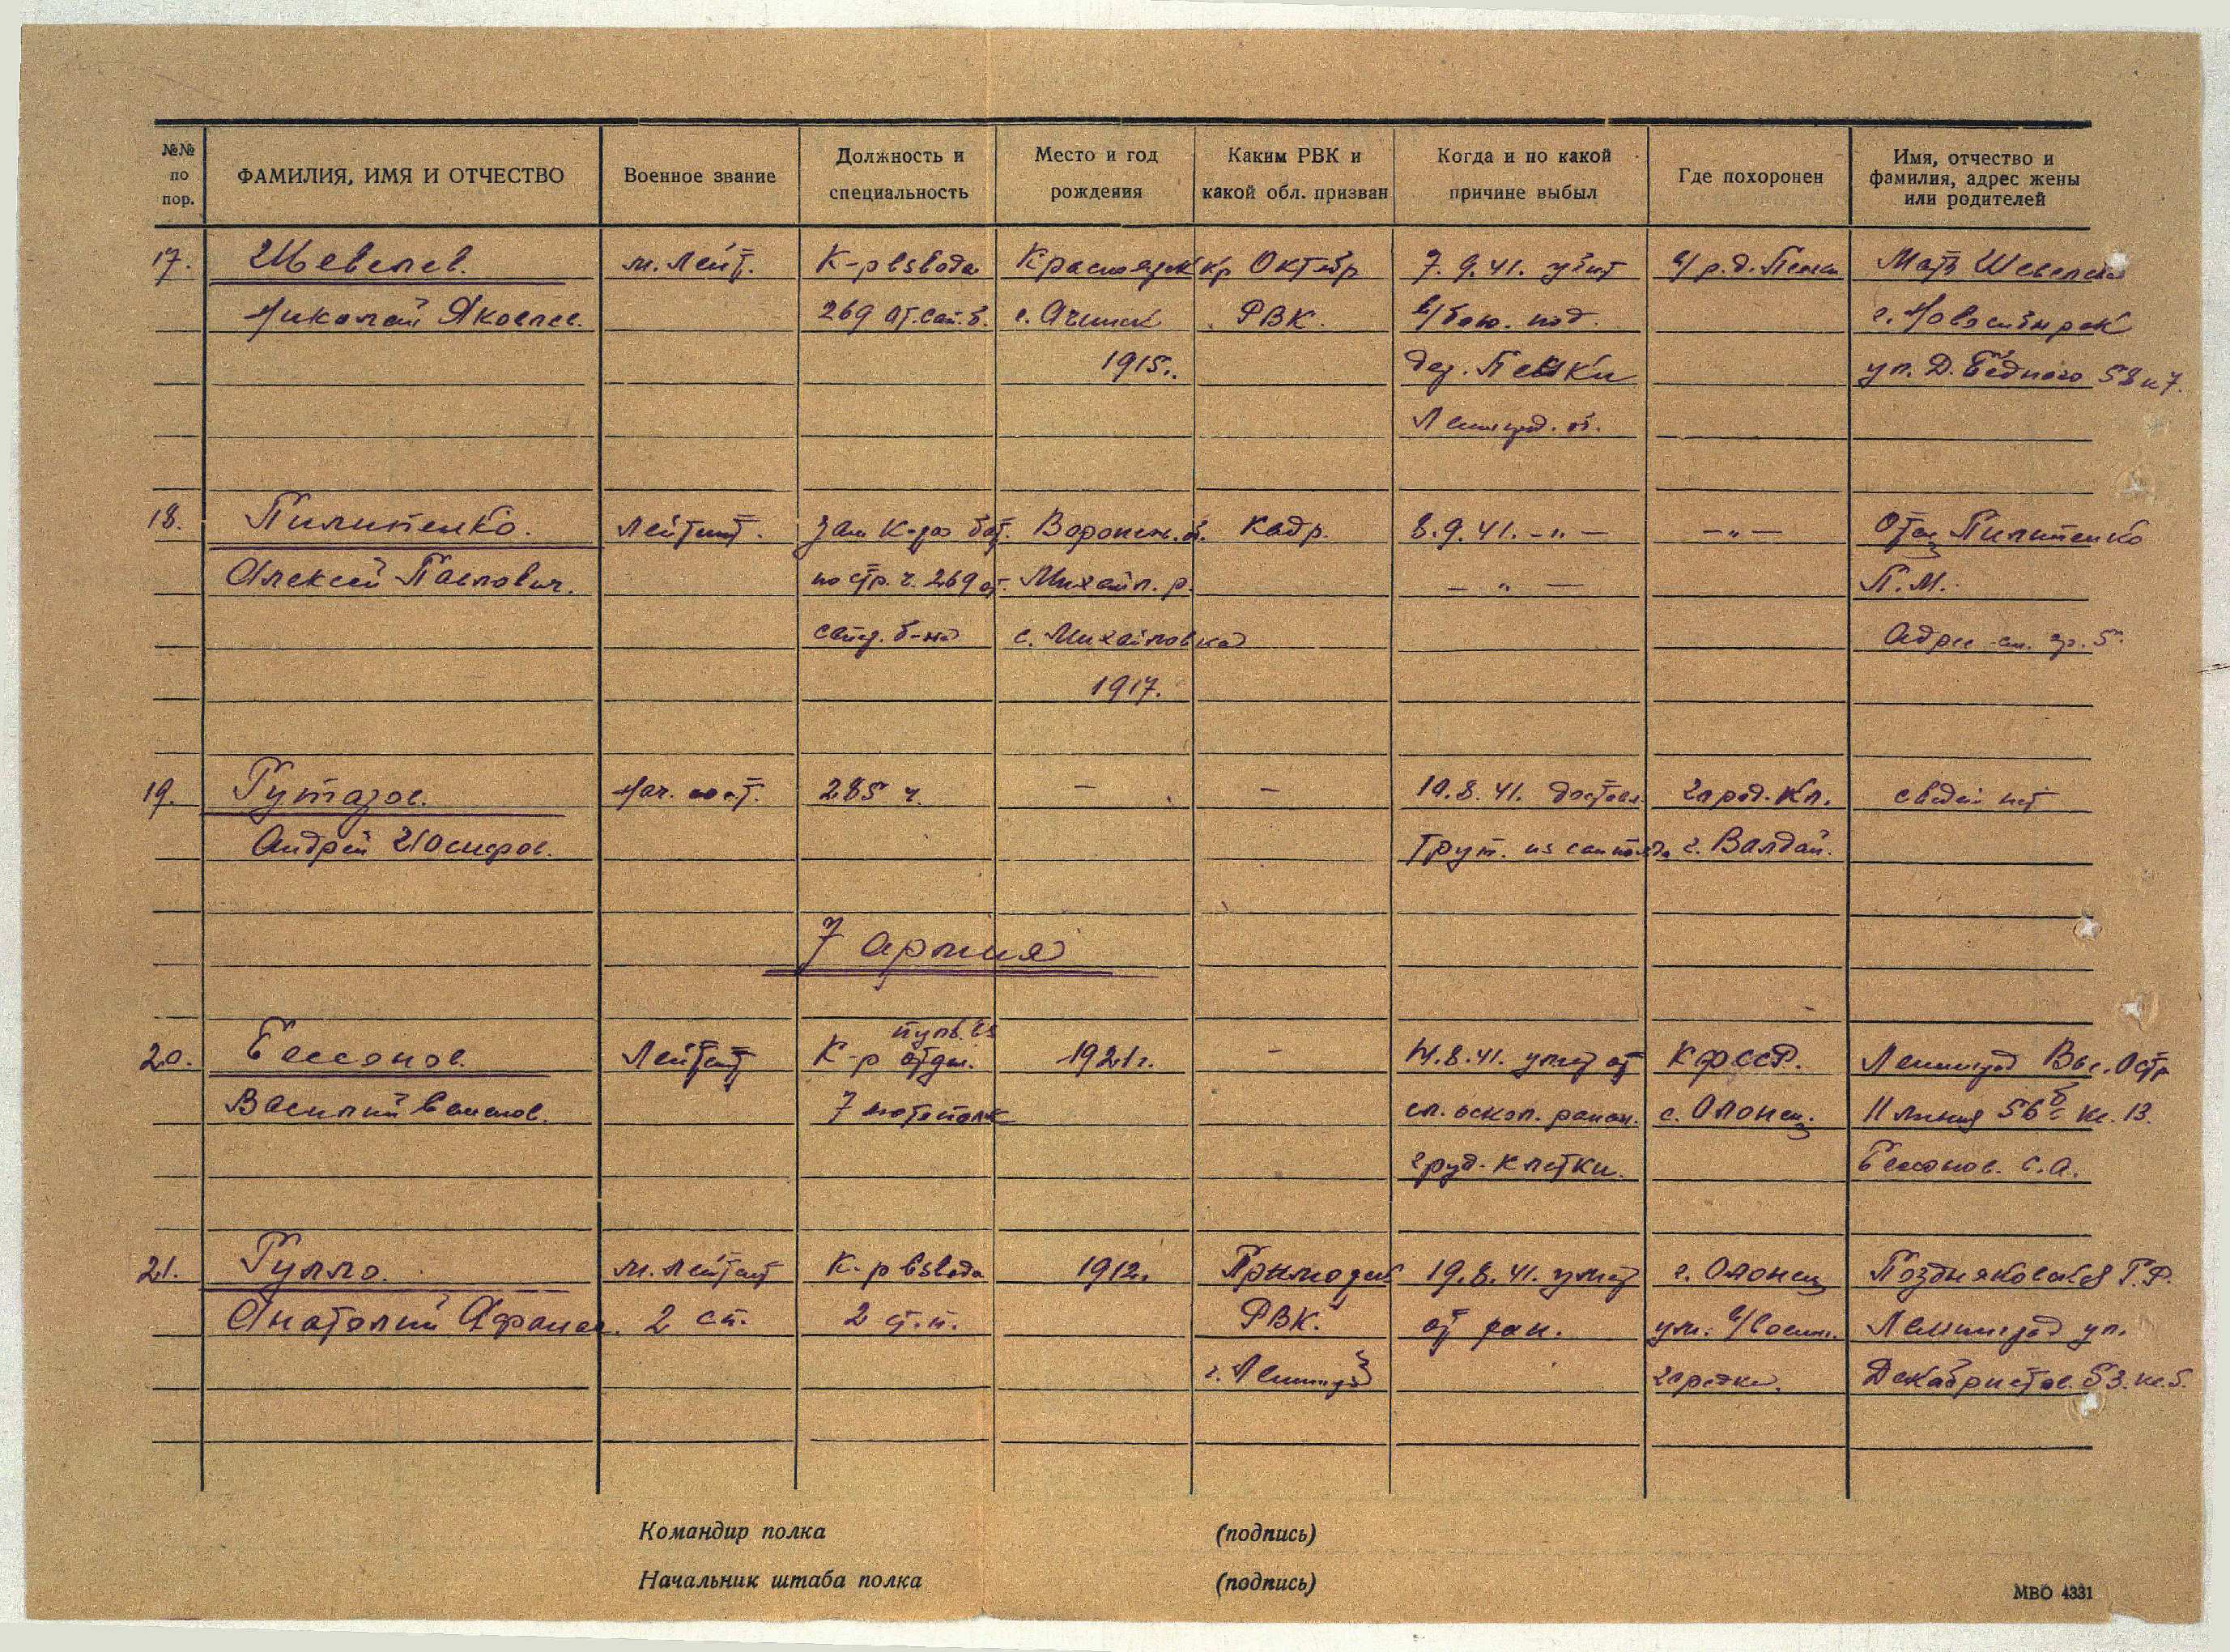 №№ по пор.
ФАМИЛИЯ, ИМЯ И ОТЧЕСТВО
Военное звание
Должность и специальность
Место и год рождения
Каким РВК и какой обл. призван
Когда и по какой причине выбыл
Где похоронен
Имя, отчество и фамилия, адрес жены или родителей
17. Шевелев. м. лейт. К-р взвода Красноярск кр Октябр 7.9.41. убит в/р. д. Пешки Мать Шевелева
Николай Яковлев. 269 от. сап. б. г. Ачинск РВК. в/бою. под г. Новосибирск
1915. дер. Пешки ул. Д. Бедного 58 к 7.
Ленинград. об.
18. Пилипенко. Лейтнт. Зам К-ра бат. Воронеж. о. Кадр. 8.9.41. -"- -"- Отец Пилипенко
Алексей Павлович. по стр. ч. 269 от. Михайл. р. -"- П. М.
сапер. б-на с. Михайловка Адрес см. гр. 5.
1917.
19. Нач. сост. 285 ч. - - 19.8.41. достав. город. Кл. сведен нет
Андрей Иосифов. Труп. из санпоезда г. Валдай.
7 армия
20. Бессонов. Лейтант К-р отдел. пульв. 1921г. - 14.8.41. умер от КФССР. Ленинград Вас. Остр
Василий Семенов. 7 мотополк сл. оскол. ранен. г. Олонец. 11 линия 56 кв. 13.
груд. клетки. Бессонов. С. А.
21. Гулло. м. лейтант К-р взвода 1912г. Приморск 19.8.41. умер г. Олонец Позднякова Г. Ф.
Анатолий Афанас. 2 сп. 2 ст. п. РВК. от ран. в/воен. Ленинград ул.
г. Ленингр городке. Декабристов. 53. кв. 5.
Командир полка (подпись)
Начальник штаба полка (подпись)
МВО 4331